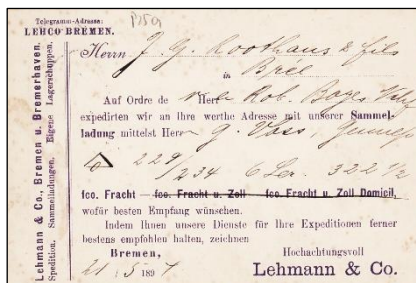 Telegramm-Adresse:
LEHCO BREMEN.
Lehmann & Co. Bremen u. Bremerhaven.
Spedition. Sammelladungen. Eigene Lagerschuppen.
Herrn J. G. & fils
in Brée
Auf Ordre de Herr Rob.
expedirten wir an Ihre werthe Adresse mit unserer Sammel-
ladung mittelst Herrn G. Voss,
229/234 6 322 1/2
fco. Fracht — fco. Fracht u. Zoll — fco. Fracht u. Zoll Domicil,
wofür besten Empfang wünschen.
Indem Ihnen unsere Dienste für Ihre Expeditionen ferner
bestens empfohlen halten, zeichnen
Bremen,
Hochachtungsvoll
21. 5. 1897
Lehmann & Co.